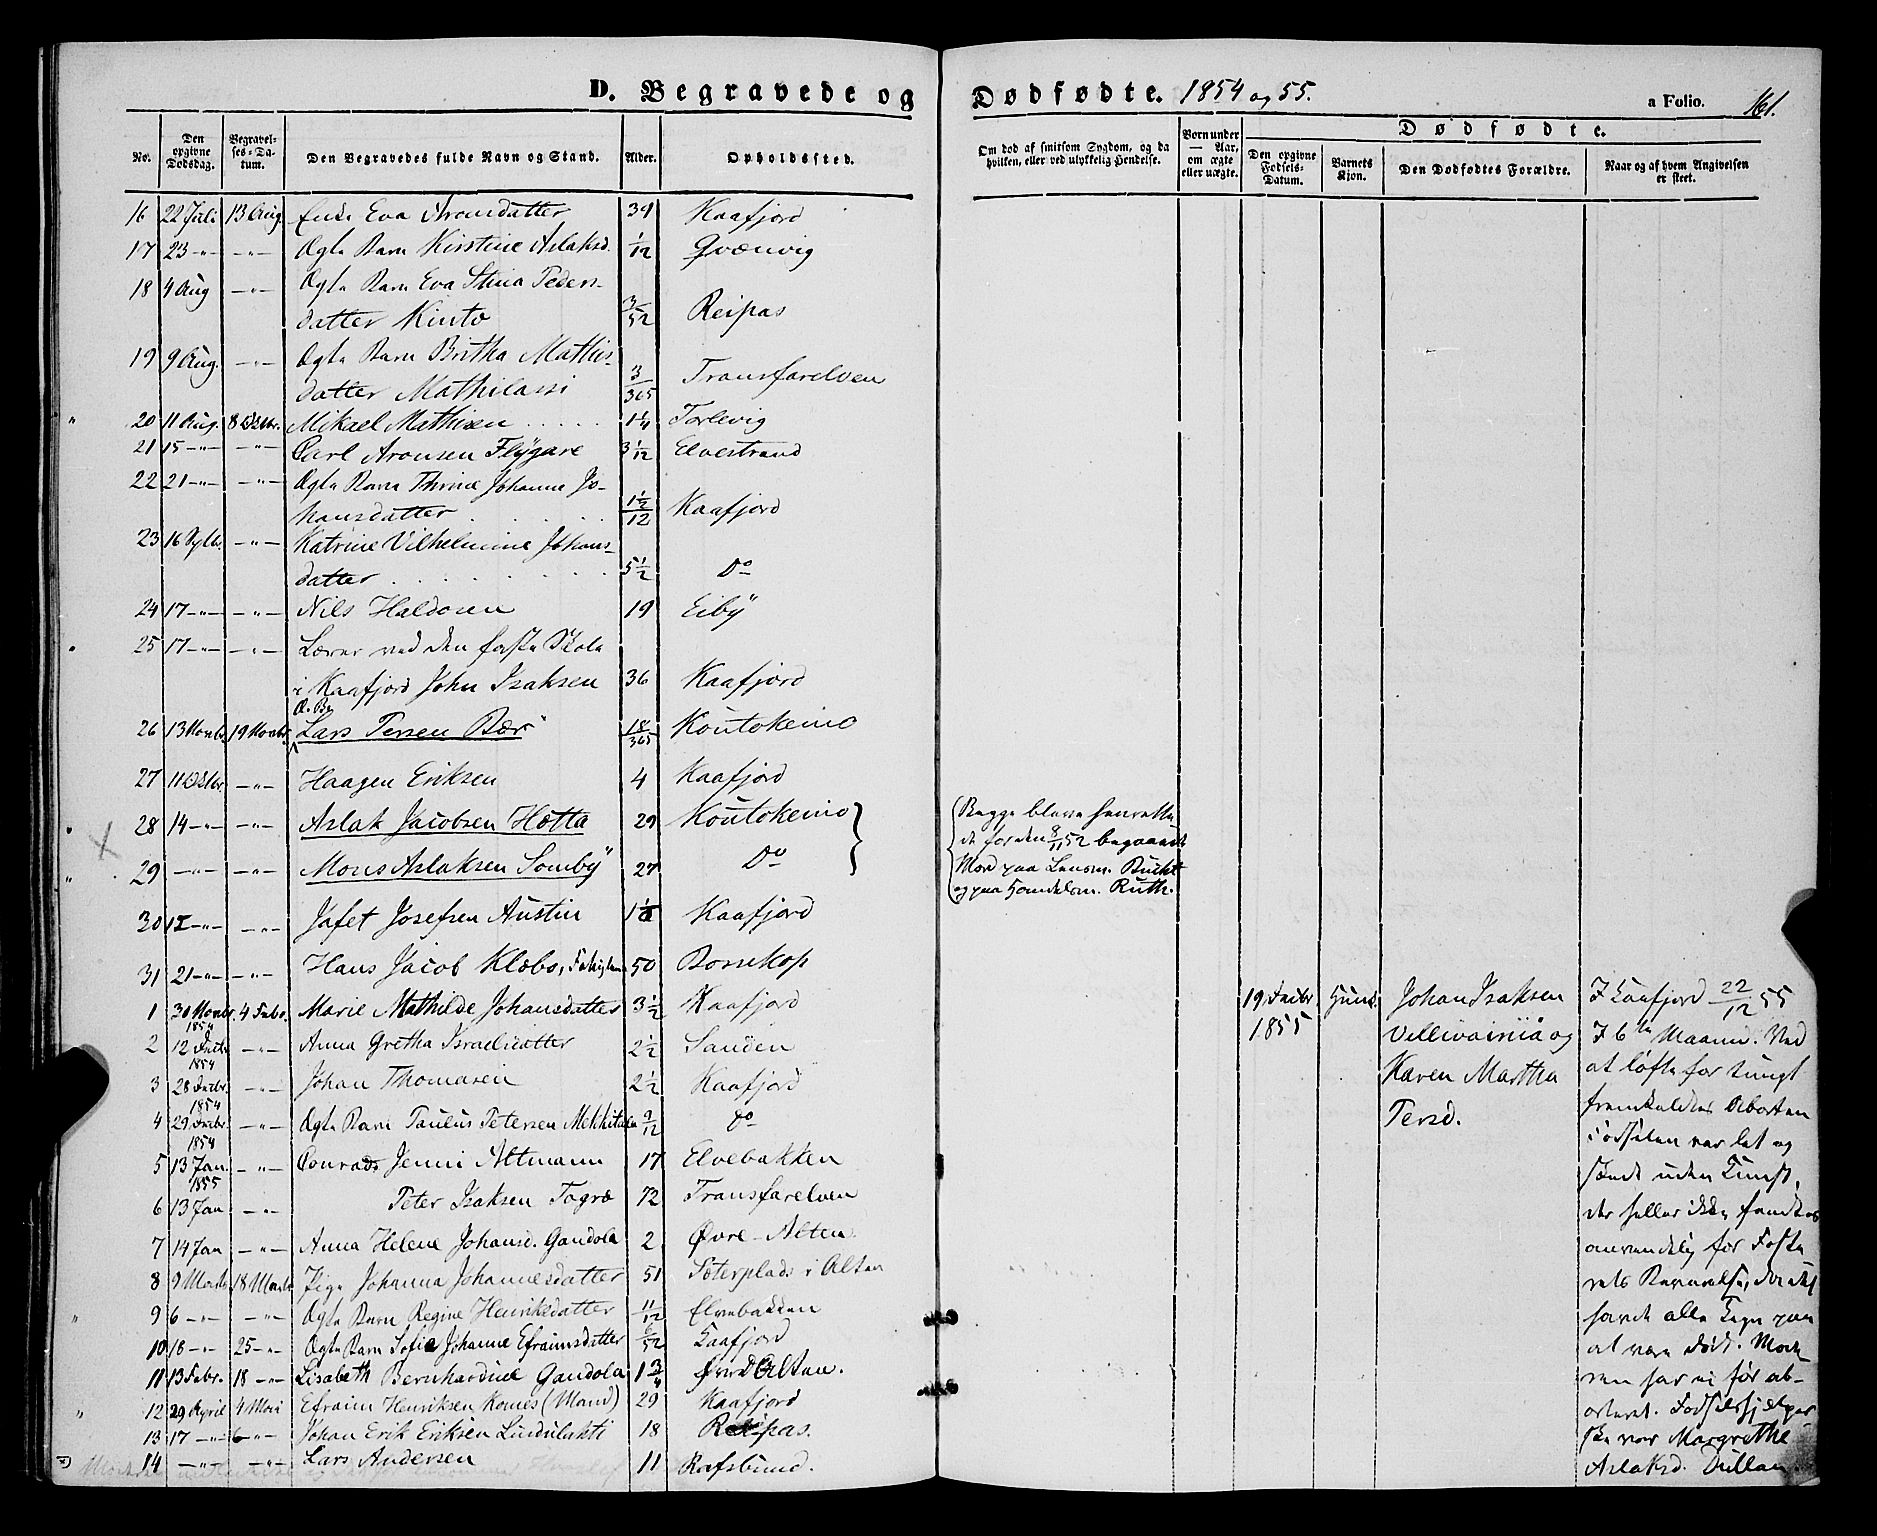 D. Begravede og Dødfødte. 1854 og 55.
a Folio. 161.
No. Den opgivne Dødsdag. Begravelses-Datum. Den Begravedes fulde Navn og Stand. Alder. Opholdssted.
Om død af smitsom Sygdom, og da hvilken, eller ved ulykkelig Hendelse. Børn under — Aar, om ægte eller uægte.
Dødfødte.
Den opgivne Fødsels-Datum. Barnets Kjøn. Den Dødfødtes Forældre. Naar og af hvem Angivelsen er skeet.
16 22 Juli 13 Aug Enke Eva Aronsdatter 39 Kaafjord
17 23 -"- -"- Ægte Barn Kirstine Aslaksd. 1/12 Qvænvig
18 4 Aug -"- Ægte Barn Eva Stina Peders-
datter Kinto 3/52 Reipas
19 9 Aug. -"- Ægte Barn Britha Mathis-
datter Mathilassi 3/365 Transfarelven
20 11 Aug. 8 Octbr. Mikael Mathisen 1 1/4 Torlevig
21 15 -"- -"- Carl Aronsen Flÿgare 3 1/12 Elvestrand
22 21 -"- -"- Ægte Barn Thrine Johanne Jo-
hansdatter 1 1/2/12 Kaafjord
23 16 -"- Katrine Vilhelmine Johans-
datter 5 1/2 Do
24 17 -"- -"- Nils Haldosen 19 Eibÿ
25 17 -"- -"- Lærer ved den faste Skole
i Kaafjord John Isaksen 36 Kaafjord
Æ. Bn
26 13 Novbr. 19 Novbr. Lars Persen Bær 18/365 Koutokeino
27 11 Octbr. -"- Haagen Eriksen 4 Kaafjord
28 14 -"- -"- Aslak Jacobsen Hætta 29 Koutokeino
29 -"- -"- Mons Aslaksen Sombÿ 27 Do
Begge bleve henrette-
de for den 8/11 52 begaaede
Mord paa Lensm. Bucht
og paa Handelsm. Ruth.
30 15 -"- -"- Jafet Josefsen Austin 1 Kaafjord
31 21 -"- -"- Hans Jacob Klæbo, 50 Bossekop
1 30 Novbr. 1854 4 Febr. Marie Mathilde Johansdatter 3 1/2 Kaafjord
2 12 Decbr 1854 -"- Anna Gretha Israelsdatter 2 1/2 Sanden
3 28 Decbr. 1854 -"- Johan Thomasen 2 1/2 Kaafjord
4 29 Decbr. 1854 -"- Ægte Barn Paulus Petersen 9/12 do
5 13 Jan. 1855 -"- Conrad Jenni Altmann 17 Elvebakken
6 13 Jan -"- Peter Isaksen Togræ 72 Transfarelven
7 14 Jan -"- Anna Helene Johansd. Gandola 2 Øvre-Alten
8 9 Marts 18 Marts Pige Johanna Johannesdatter 51 Sæterplads i Alten
9 6 -"- -"- Ægte Barn Regine Henriksdatter 11/12 Elvebakken
10 18 -"- 25 -"- Ægte Barn Sofie Johanne Efraimsdatter 6/52 Kaafjord
11 13 Febr. 18 -"- Lisabeth Bernhardine Gandola 1 3/4 Øvre Alten.
12 29 April 4 Mai Efraim Henriksen Komes (Mand) 29 Kaafjord
13 17 -"- 6 -"- Johan Erik Eriksen Lindulahti 18 Reipas.
14 -"- -"- Lars Andersen 11 Rafsbund.
19 Decbr. 1855 Hunk.
Johan Isaksen
Vellivainia og
Karen Martha
Persd.
I Kaafjord 22/12 55
I 6te Maaned. Ved
at løfte for tungt
fremkaldtes Aborten
Fødselen var let og
skedt uden Kunst,
der heller ikke fandtes
anvendelig for Foste-
rets Bevarelse, der
havde alle Tegn paa
at være dødt. Mode-
ren har ei før ab-
orteret. Fødselshjelper-
ske var Margrethe
Aslaksd. Dullan.